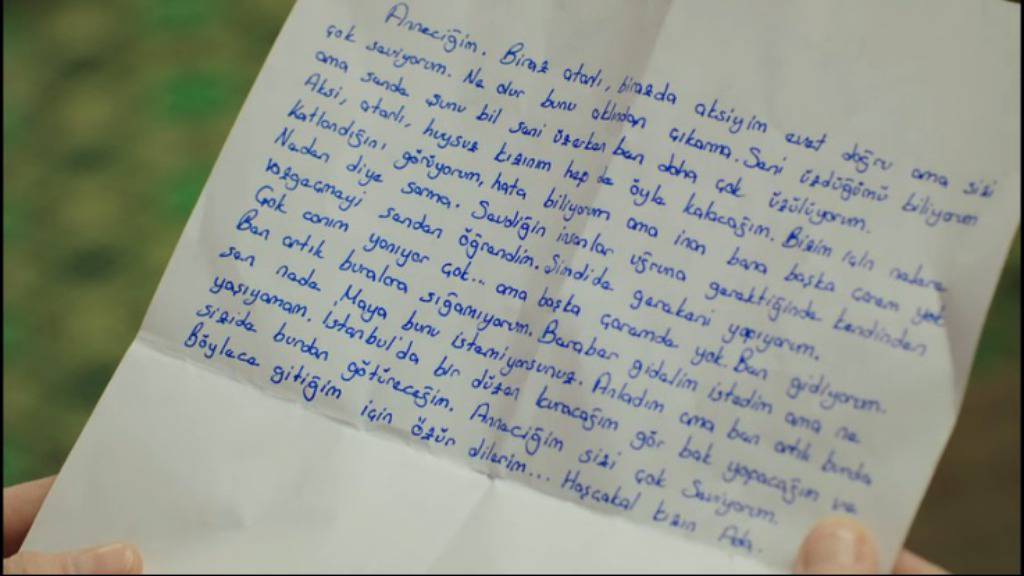 Anneciğim. Biraz atarlı, birazda aksiyim evet doğru ama sizi
çok seviyorum. Ne olur bunu aklından çıkarma. Seni üzdüğümü biliyorum
ama sende şunu bil seni üzerken ben daha çok üzülüyorum.
Aksi, atarlı, huysuz kızınım hep de öyle kalacağım. Bizim için nelere
katlandığını görüyorum, hata biliyorum ama inan bana başka çarem yok
Neden diye sorma. Sevdiğin insanlar uğruna gerektiğinde kendinden
vazgeçmeyi senden öğrendim. Şimdide gerekeni yapıyorum.
Çok canım yanıyor çok... ama başka çaremde yok. Ben gidiyorum.
Ben artık buralara sığamıyorum. Beraber gidelim istedim ama ne
sen nede Maya bunu istemiyorsunuz. Anladım ama ben artık burda
yaşıyamam. İstanbul'da bir düzen kuracağım gör bak yapacağım ve
sizide burdan götüreceğim. Anneciğim sizi çok Seviyorum.
Böylece gitiğim için özür dilerim... Hoşçakal kızın Ada.